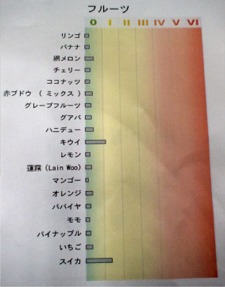 フルーツ
O I II III IV V VI
リンゴ
バナナ
網メロン
チェリー
ココナッツ
赤ブドウ (ミックス)
グレープフルーツ
グアバ
ハニデュー
キウイ
レモン
蓮霧 (Lain Woo)
マンゴー
オレンジ
パパイヤ
モモ
パイナップル
いちご
スイカ